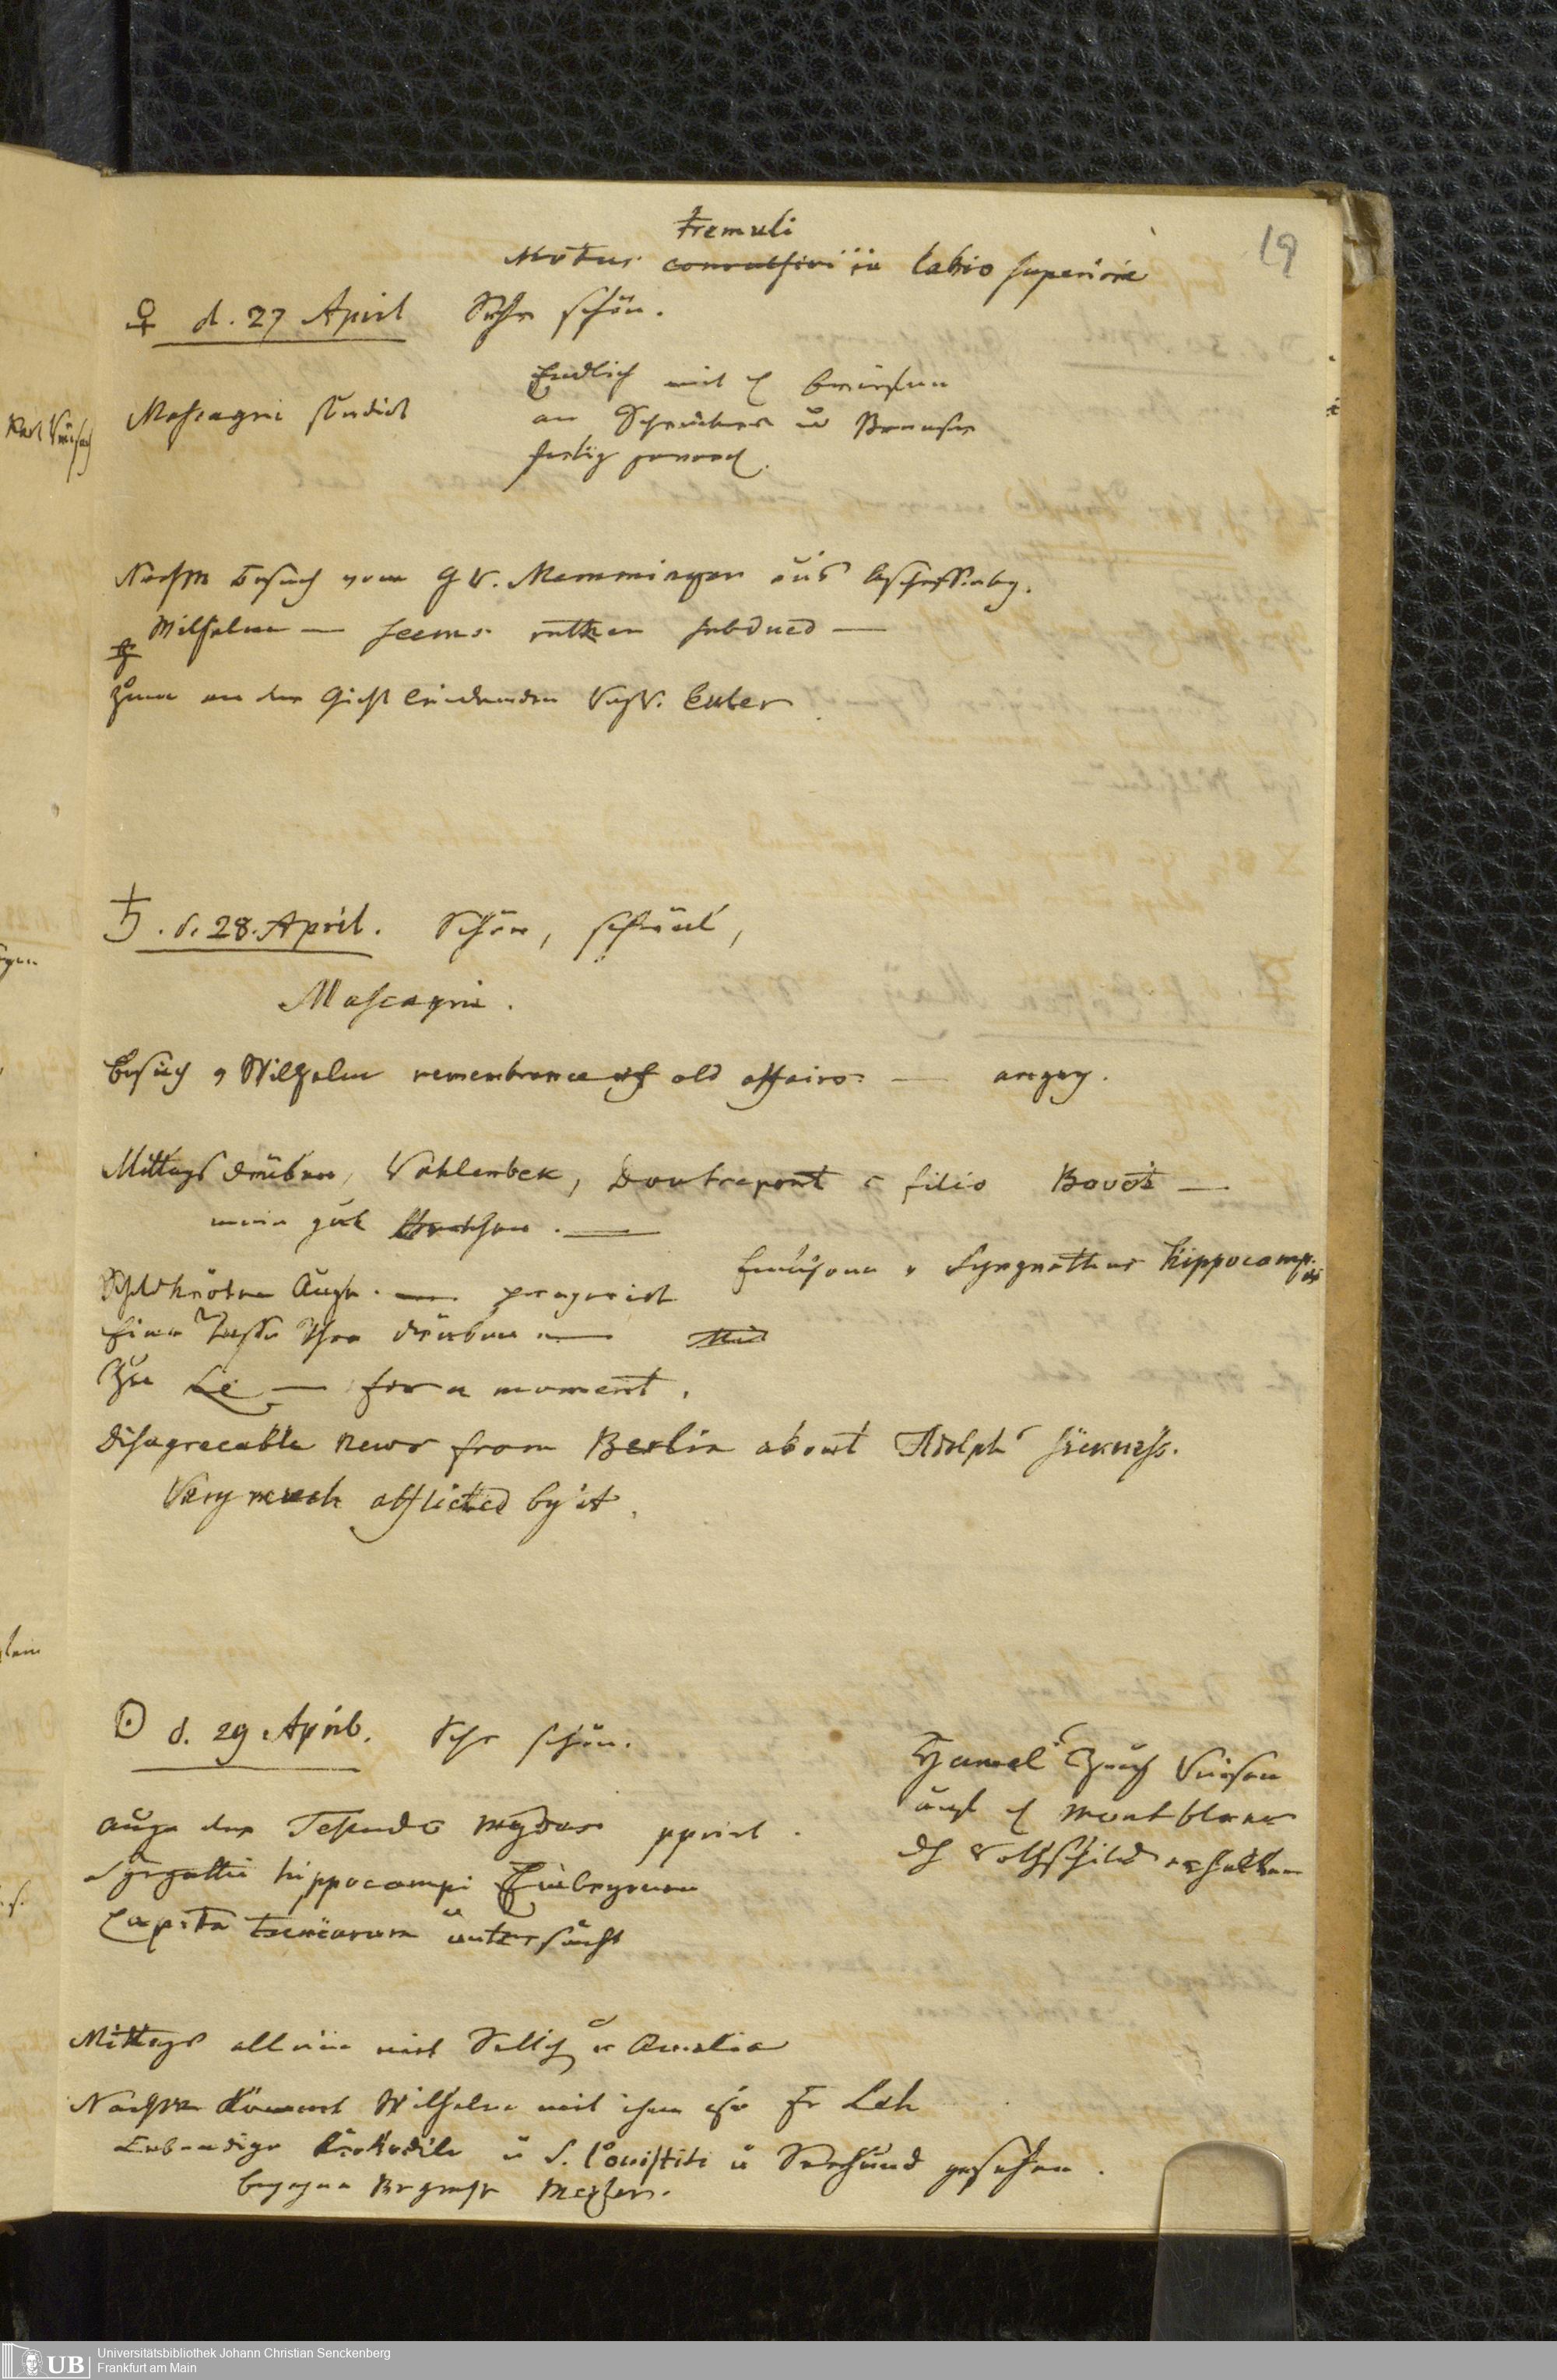 19
tremuli
Motus convulsivi in labio superiore
♀ d. 27 April Sehr schön.
Endlich mit d Briefen
Mascagni studirt
an Schreibers u
fertig
Nachm Besuch vom G R. Memminger aus
Wilhelm — seems rather subdued —
zum an der Gicht leidenden Euler
♄. d. 28. April. Schön, schwül,
Mascagni.
Besuch v Wilhelm remembrance of old affairs — angry.
Mittags drüben, Vahlenbek, Doutrepont c filio Bovot —
mein gut
Embryonen v Syngnathus hippocampus
Schildkröten Auge. — präparirt
Eine Tasse Thee drüben — Mit
Zu Le — for a moment.
Disagreeable news from Berlin about Adolph sickness.
Very much afflicted by it.
☉ d. 29 April. Sehr schön.
Hamel's zwey Reisen
auf d Montblanc
dh Rothschild erhalten
Auge der Testudo mydas ppirt.
Syngnathi hippocampi Embryonen
Capita taeniarum untersucht
Mittags allein mit u Amalia
Nachm kommt Wilhelm mit ihm
Lebendige Krokodile u S. Ouistiti u Seehund gesehen.
begegne
Universitätsbibliothek Johann Christian Senckenberg
Frankfurt am Main
UB